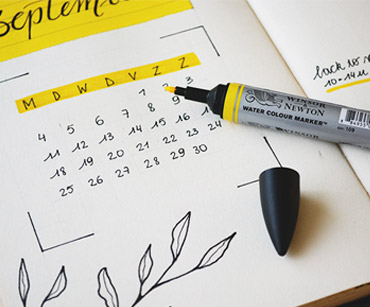 Septem
M D W D V Z Z
1 2 3
4 5 6 7 8 9
11 12 13 14 15 16 17
18 19 20 21 22 23 24
25 26 27 28 29 30
back
10-14u
WINSOR
& NEWTON
WATER COLOUR MARKER™
169